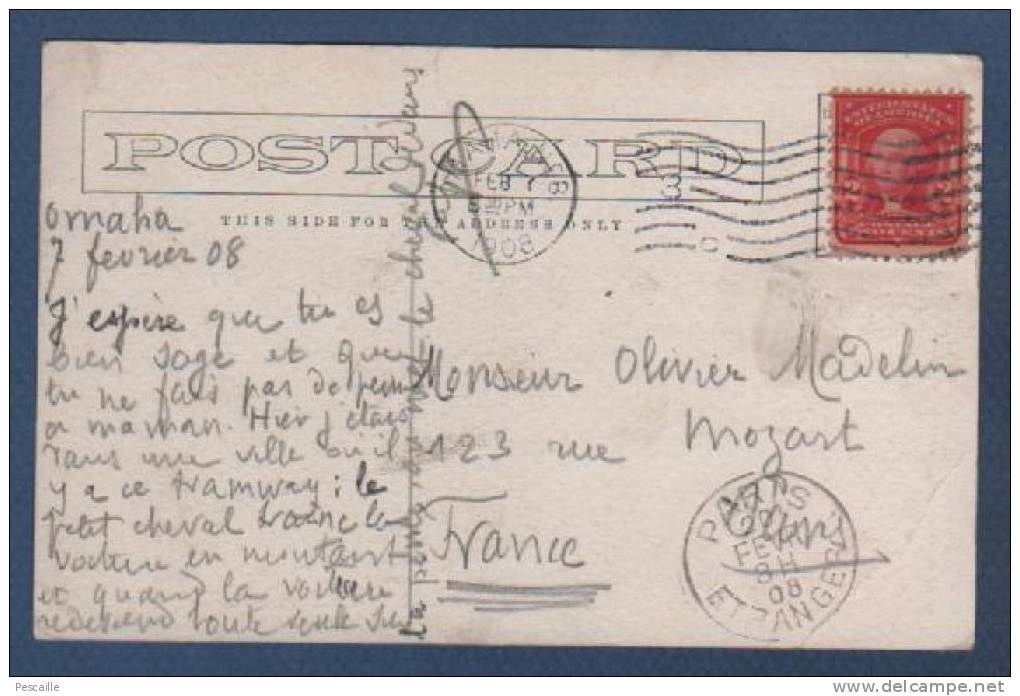 POST CARD
THIS SIDE FOR THE ADDRESS ONLY
OMAHA
FEB 7
PM
1908
3
C
UNITED STATES
OF AMERICA
2
2
Omaha
7 fevrier 08
J'espère que tu es
bien sage et que
tu ne fais pas de peine
a maman. Hier j'étais
dans une ville où il
y a ce tramway : le
petit cheval traine la
voiture en montant
et quand la voiture
redescend toute seule sur
la pente on met le cheval dedans
Monsieur Olivier Madelin
123 rue Mozart
Paris
France
PARIS
ETRANGER
FEV
08
Pescaille
www.delcampe.net